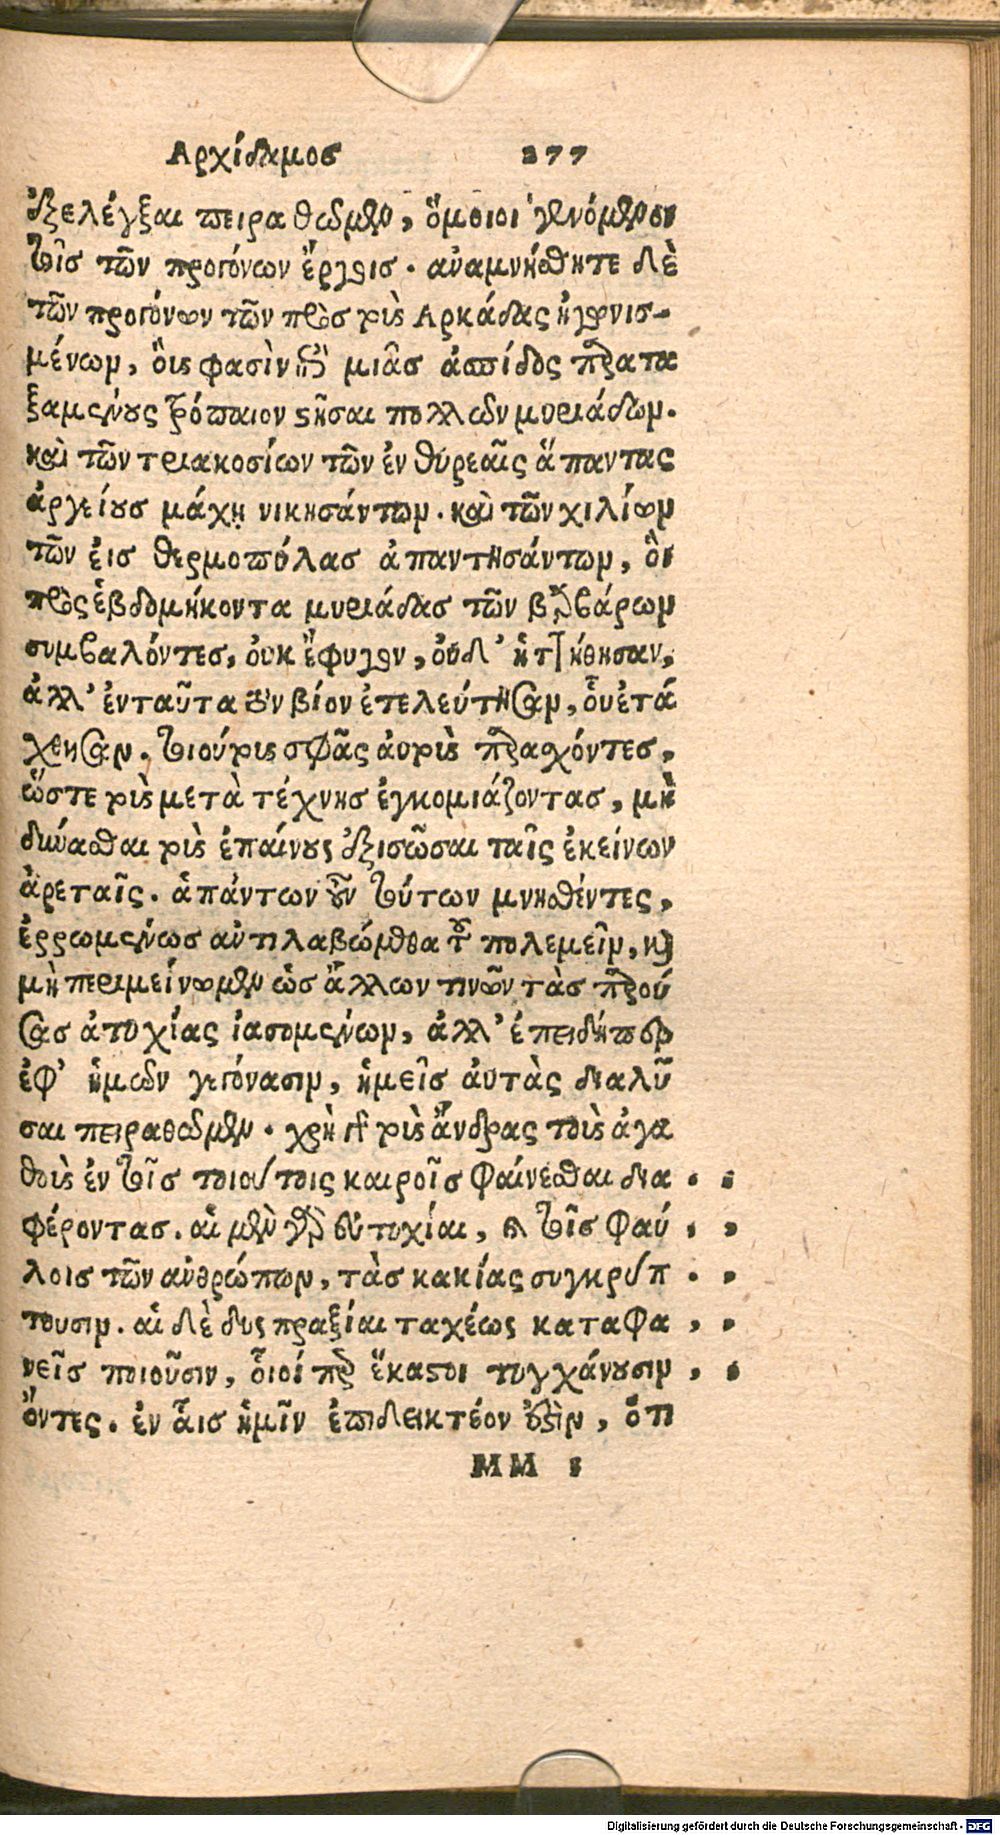 Αρχίδαμοσ 277
ἐξελέγξαι πειραθῶμεν, ὅμοιοι γενόμενοι
τοῖσ τῶν προγόνων ἔργοισ. ἀναμνήσθητε δὲ
τῶν προγόνων τῶν πρὸσ τοὺς Αρκάδας ἠγωνισ-
μένων, οἷς φασὶν ἐπὶ μιᾶσ ἀσπίδος παρατα
ξαμένους τρόπαιον στῆσαι πολλῶν μυριάδων.
καὶ τῶν τριακοσίων τῶν ἐν θυρεαῖς ἅπαντας
ἀργείουσ μάχῃ νικησάντων. καὶ τῶν χιλίων
τῶν εἰσ θερμοπύλασ ἀπαντησάντων, οἳ
πρὸς ἑβδομήκοντα μυριάδασ τῶν βαρβάρων
συμβαλόντεσ, οὐκ ἔφυγον, οὐδ’ ἡττήθησαν,
ἀλλ’ ἐνταῦτα τὸν βίον ἐτελεύτησαν, οὗ ἐτά
χθησαν. τοιούτους σφᾶς αὐτοὺς παρασχόντεσ,
ὥστε τοὺς μετὰ τέχνησ ἐγκομιάζοντασ, μὴ
δύνασθαι τοὺς ἐπαίνους ἐξισῶσαι ταῖς ἐκείνων
ἀρεταῖς. ἁπάντων οὖν τούτων μνησθέντες,
ἐρρωμένωσ ἀντιλαβώμεθα τοῦ πολεμεῖν, καὶ
μὴ περιμείνωμεν ὡσ ἄλλων τινῶν τὰσ παρού
σασ ἀτυχίας ἰασομένων, ἀλλ’ ἐπειδήπερ
ἐφ’ ἡμῶν γεγόνασιν, ἡμεῖσ αὐτὰς διαλῦ
σαι πειραθῶμεν. χρὴ δὲ τοὺς ἄνδρας τοὺς ἀγα
θοὺς ἐν τοῖσ τοιούτοις καιροῖσ φαίνεσθαι δια
φέροντασ. αἱ μὲν γὰρ εὐτυχίαι, καὶ τοῖσ φαύ
λοισ τῶν ἀνθρώπων, τὰσ κακίας συγκρύπ
τουσιν. αἱ δὲ δυς πραξίαι ταχέως καταφα
νεῖσ ποιοῦσιν, ὁποῖοί περ ἕκαστοι τυγχάνουσιν
ὄντες. ἐν αἷσ ἡμῖν ἐπιδεικτέον ἐστὶν, ὅτι
MM 5
Digitalisierung gefördert durch die Deutsche Forschungsgemeinschaft - DFG